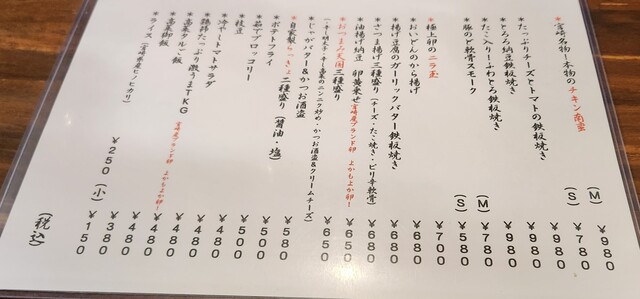 ＊宮崎名物！本物のチキン南蛮
（M）￥980
（S）￥780
＊たっぷりチーズとトマトの鉄板焼き ￥980
＊とろろ納豆鉄板焼き ￥980
＊たこ入り！ふわとろ鉄板焼き ￥980
＊豚のど軟骨スモーク
（M）￥780
（S）￥580
＊極上卵のニラ玉 ￥700
＊おいどんのから揚げ ￥680
＊揚げ豆腐のガーリックバター鉄板焼き ￥680
＊さつま揚げ三種盛り（チーズ・たこ焼き・ピリ辛軟骨） ￥680
＊油揚げ納豆 卵黄乗せ 宮崎産ブランド卵 よかもよか卵！ ￥680
＊おつまみ天国三種盛り ￥650
（一辛明太子・ニンニク炒め・かつお酒盗＆クリームチーズ）
＊じゃがバター＆かつお酒盗 ￥650
＊自家製らっきょ三種盛り（醤油・塩） ￥580
＊ポテトフライ ￥500
＊茹でブロッコリー ￥500
＊枝豆 ￥500
＊冷やしトマトサラダ ￥480
＊鶏そぼろたっぷり激うまTKG 宮崎産ブランド卵 よかもよか卵！ ￥480
＊高菜タルタル飯 ￥480
＊高菜御飯 ￥380
＊ライス（宮崎県産ヒノヒカリ） ￥250（小）￥150
（税込）